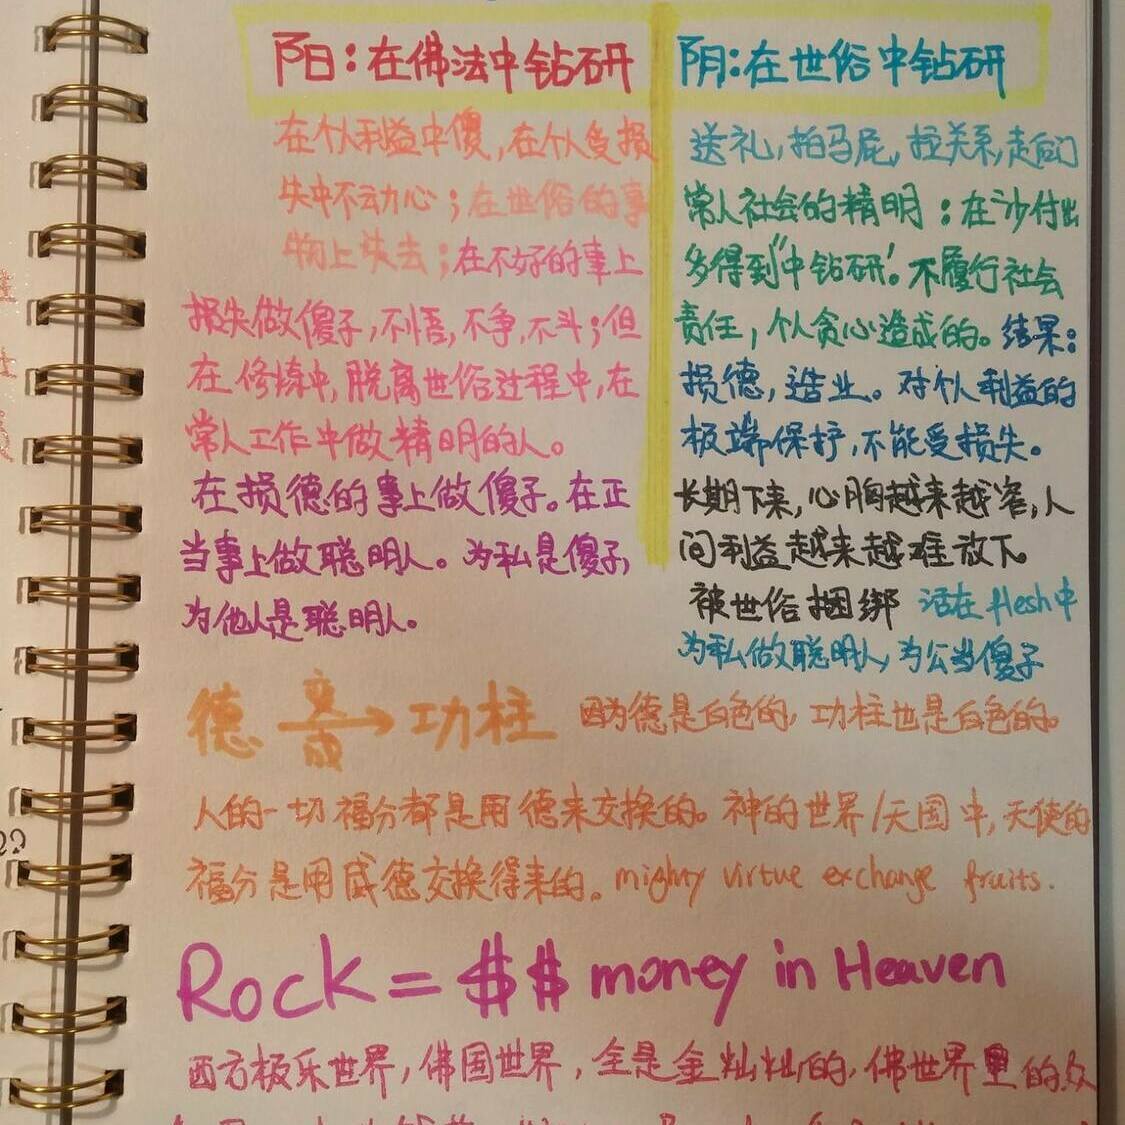 阳:在佛法中钻研
在个人利益中傻,在个人受损
失中不动心;在世俗的事
物上失去;在不好的事上
损失做傻子,不悟,不争,不斗;但
在修炼中,脱离世俗过程中,在
常人工作中做精明的人。
在损德的事上做傻子。在正
当事上做聪明人。为私是傻子,
为他人是聪明人。
阴:在世俗中钻研
送礼,拍马屁,拉关系,走后门
常人社会的精明:在"少付出
多得到"中钻研。不履行社会
责任,个人贪心造成的。结果:
损德,造业。对个人利益的
极端保护,不能受损失。
长期下来,心胸越来越窄,人
间利益越来越难放下。
被世俗捆绑 活在flesh中
为私做聪明人,为公当傻子
德 变成→ 功柱 因为德是白色的,功柱也是白色的。
人的一切福分都是用德来交换的。神的世界/天国中,天使的
福分是用威德交换得来的。mighty virtue exchange fruits.
Rock = $$ money in Heaven
西方极乐世界,佛国世界,全是金灿灿的,佛世界里的众